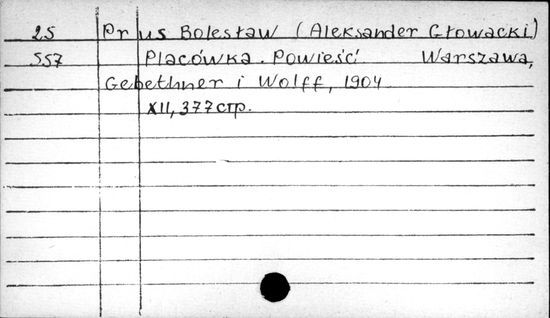 25 Prus Bolesław (Aleksander Głowacki)
557 Placówka. Powieść. Warszawa,
Gebethner i Wolff, 1904
XII, 377 стр.